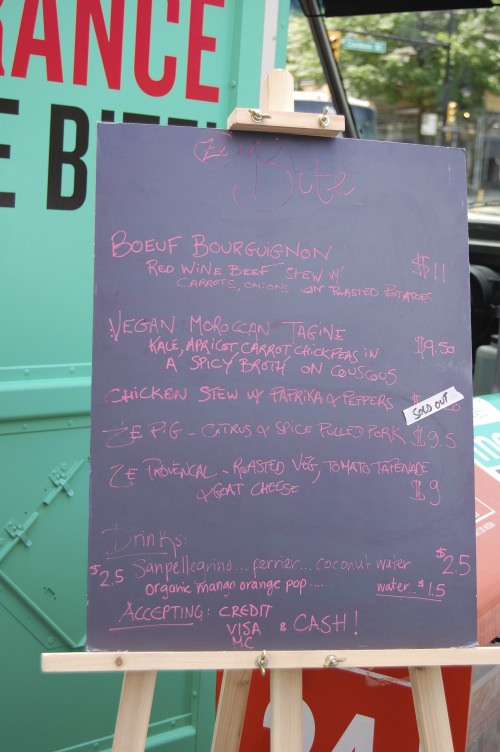 RANCE
E BITE
Ze Bite
BOEUF BOURGUIGNON $11
RED WINE BEEF STEW W/
CARROTS, ONIONS ON ROASTED POTATOES
VEGAN MOROCCAN TAGINE $9.50
KALE, APRICOT, CARROT, CHICKPEAS IN
A SPICY BROTH ON COUSCOUS
CHICKEN STEW W/ PAPRIKA & PEPPERS
SOLD OUT
ZE P.G - CITRUS & SPICE PULLED PORK $9.5
ZE PROVENCAL - ROASTED VEG, TOMATO TAPENADE
& GOAT CHEESE $9
Drinks:
$2.5 Sanpellegrino... perrier... coconut water $2.5
organic mango orange pop.... water. $1.5
ACCEPTING: CREDIT
VISA & CASH!
MC
24